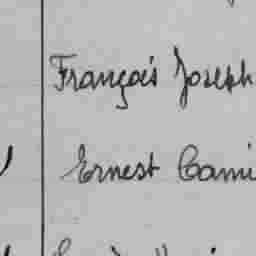 François Joseph
Ernest Cami